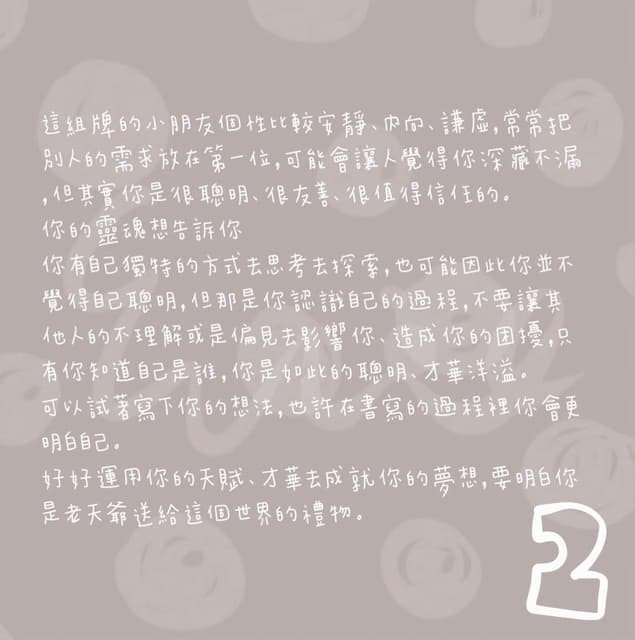 這組牌的小朋友個性比較安靜、內向、謙虛,常常把
別人的需求放在第一位,可能會讓人覺得你深藏不漏
,但其實你是很聰明、很友善、很值得信任的。
你的靈魂想告訴你
你有自己獨特的方式去思考去探索,也可能因此你並不
覺得自己聰明,但那是你認識自己的過程,不要讓其
他人的不理解或是偏見去影響你、造成你的困擾,只
有你知道自己是誰,你是如此的聰明、才華洋溢。
可以試著寫下你的想法,也許在書寫的過程裡你會更
明白自己。
好好運用你的天賦、才華去成就你的夢想,要明白你
是老天爺送給這個世界的禮物。
2